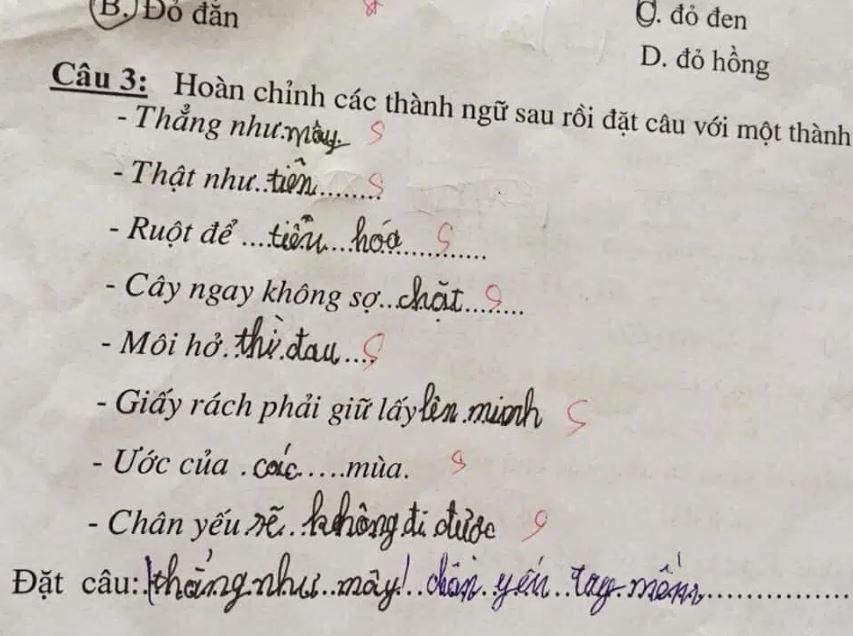 B. Đỏ đắn
C. đỏ đen
D. đỏ hồng
Câu 3: Hoàn chỉnh các thành ngữ sau rồi đặt câu với một thành
- Thẳng như.mây
- Thật như..tiên.......
- Ruột để ...tiêu...hóa..........
- Cây ngay không sợ..chặt........
- Môi hở.thì.đau....
- Giấy rách phải giữ lấy lên.mionh
- Ước của .các.....mùa.
- Chân yếu sẽ..không đi được
Đặt câu: thẳng.như..mây!..chân.yếu..tay.mềm................